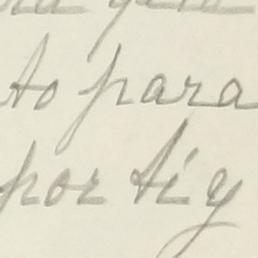 to para
por tí y